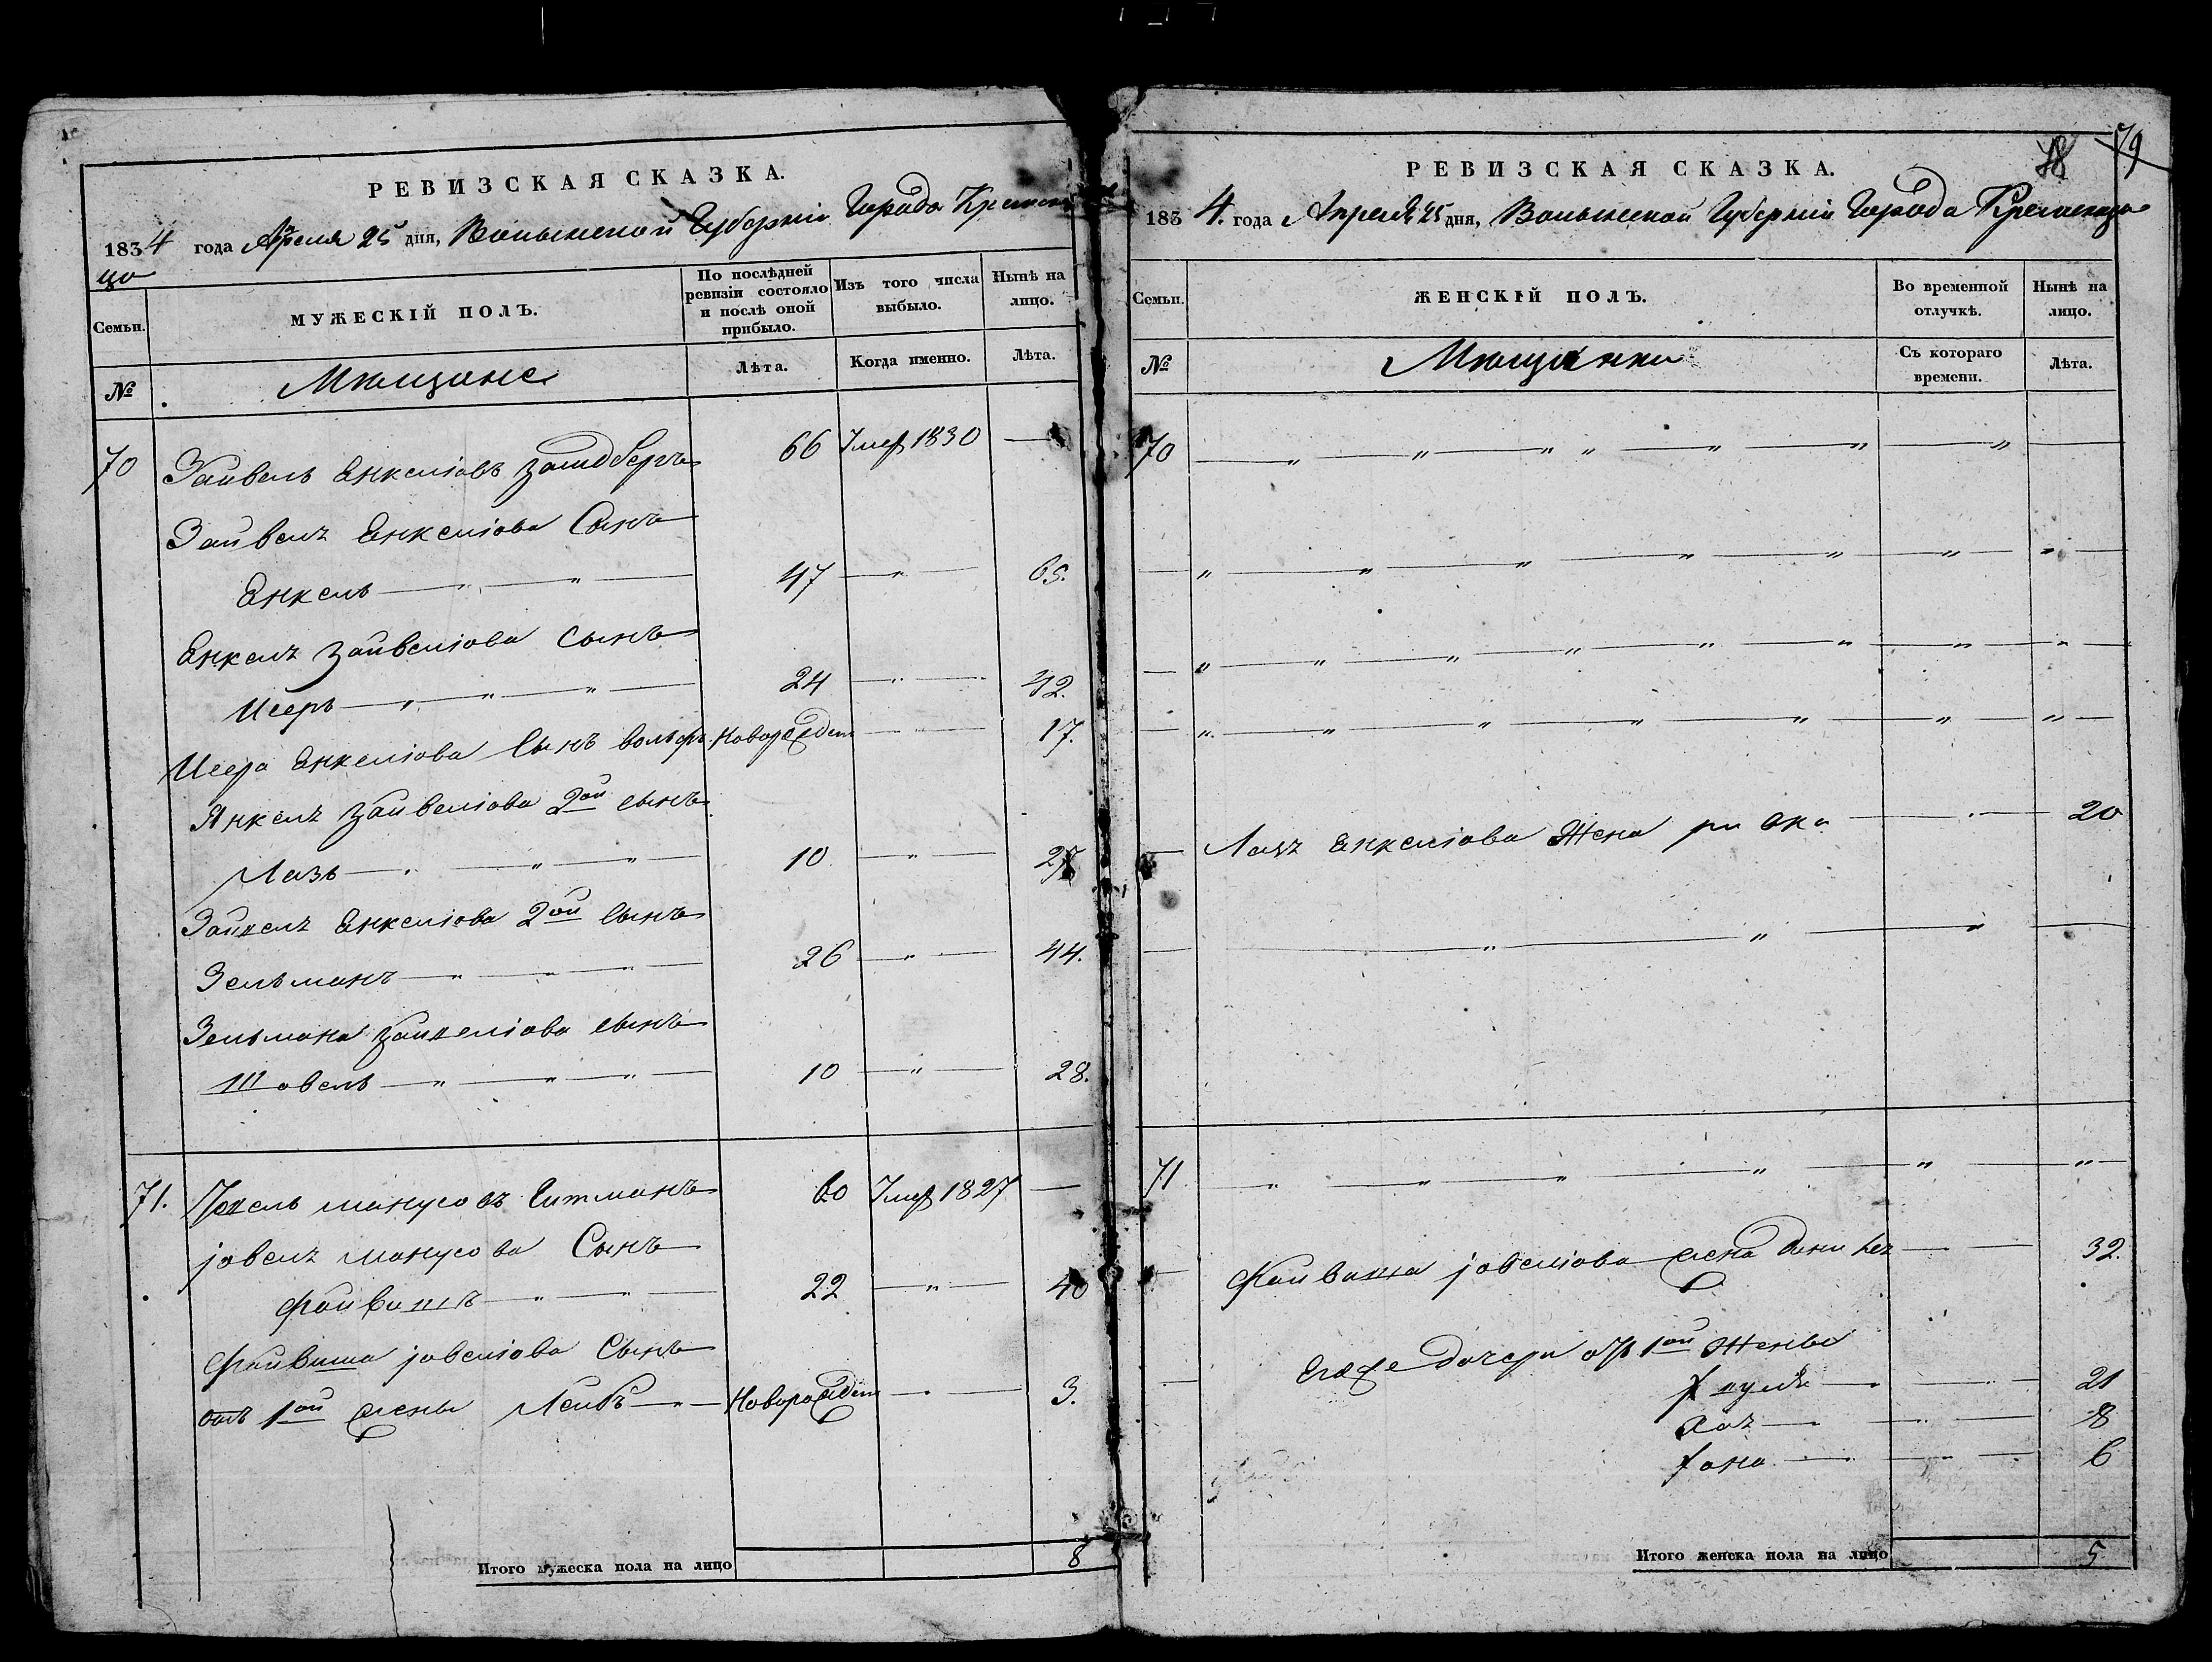 РЕВИЗСКАЯ СКАЗКА.
1834 года Апреля 25 дня, Волынской Губерніи Города Кременца
Семьи. МУЖЕСКІЙ ПОЛЪ. По послѣдней ревизіи состояло и послѣ оной прибыло. Изъ того числа выбыло. Нынѣ на лицо.
№ Мѣщане Лѣта. Когда именно. Лѣта.
70 Зайвель Енкеліовъ 66 Умер 1830 —
Зайвелъ Енкеліова Сынъ
Енкель — " — " — 47 — " — 65.
Енкелъ Зайвеліова сынъ
Исеръ — " — " — " — 24 — " — 42.
Исера Енкеліова Сынъ Вольфъ Новорожден — " — 17.
Янкелъ Зайвеліова 2ой сынъ
Лазь — " — " — " — 10 — " — 27
Енкеліова 2ой Сынъ
Зельманъ — " — " — " — 26 — " — 44.
Зельмана сынъ
Шовель — " — " — " — 10 — " — 28.
71. манусовъ Гитманъ 60 Умер 1827 —
Іовелъ манусова Сынъ
Файвишъ — " — " — 22 — " — 40
Файвиша Іовеліова Сынъ
отъ 1ой жены Лейбъ — " — Новорожден — " — 3.
Итого мужеска пола на лицо 8
78 79
РЕВИЗСКАЯ СКАЗКА.
1834. года Апреля 25 дня, Волынской Губерніи Города Кременца
Семьи. ЖЕНСКІЙ ПОЛЪ. Во временной отлучкѣ. Нынѣ на лицо.
№ Мѣщанки Съ котораго времени. Лѣта.
70 — " — " — " — " — " — " — " —
— " — " — " — " — " — " — " —
— " — " — " — " — " — " — " — " —
— " — " — " — " — " — " — " —
— Лазъ Енкеліова Жена ривка — " — 20
— " — " — " —
71 — " — " — " — " — " — " —
— Файвиша Іовеліова жена — " — 32.
— Егоже дочери отъ 1ой Жены
— " — 21
Хая — " — 8
Хана — " — 6
Итого женска пола на лицо 5